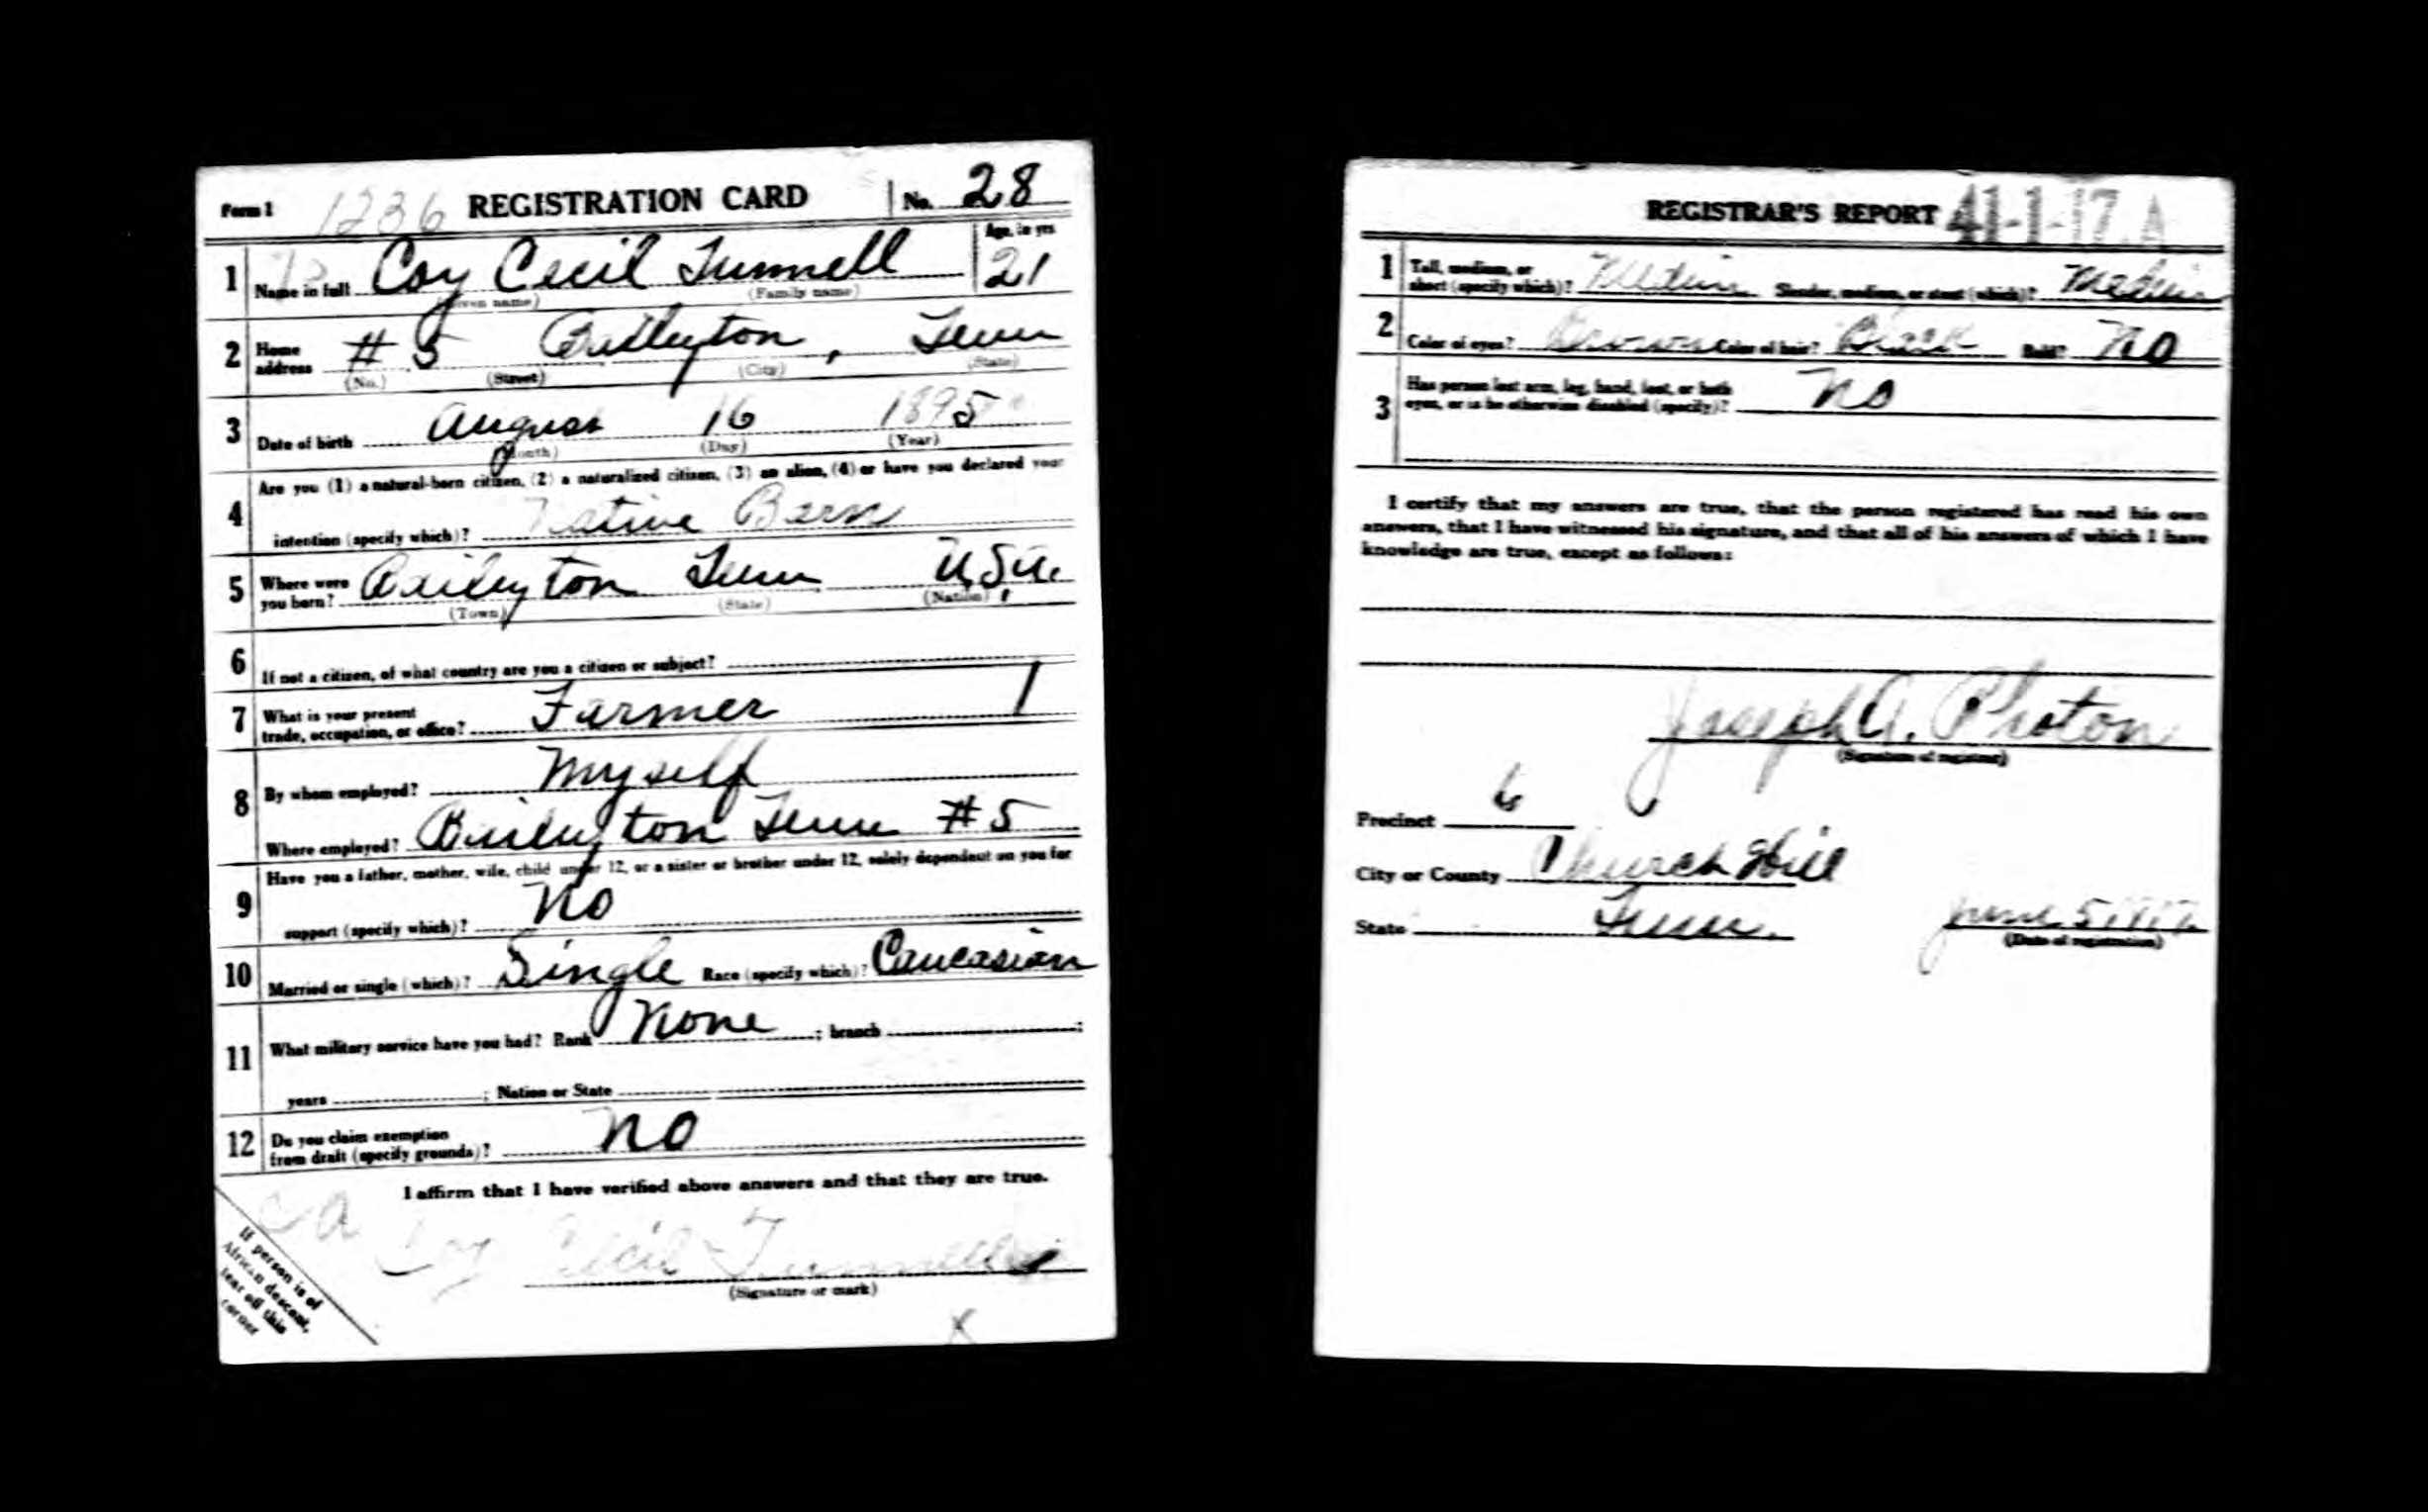 Form 1 1236 REGISTRATION CARD No. 28
1 Name in full Coy Cecil Tunnell Age, in yrs 21
(Given name) (Family name)
2 Home address # 5 Baileyton, Tenn
(No.) (Street) (City) (State)
3 Date of birth August 16 1895
(Month) (Day) (Year)
4 Are you (1) a natural-born citizen, (2) a naturalized citizen, (3) an alien, (4) or have you declared your
intention (specify which)? Native Born
5 Where were you born? Baileyton Tenn U.S.A.
(Town) (State) (Nation)
6 If not a citizen, of what country are you a citizen or subject?
7 What is your present trade, occupation, or office? Farmer 1
8 By whom employed? Myself
Where employed? Baileyton Tenn #5
9 Have you a father, mother, wife, child under 12, or a sister or brother under 12, solely dependent on you for
support (specify which)? No
10 Married or single (which)? Single Race (specify which)? Caucasian
11 What military service have you had? Rank None ; branch ;
years ; Nation or State
12 Do you claim exemption from draft (specify grounds)? No
I affirm that I have verified above answers and that they are true.
Coy Cecil Tunnell
(Signature or mark)
If person is of
African descent,
tear off this
corner
X
REGISTRAR'S REPORT 41-1-17 A
1 Tall, medium, or short (specify which)? Medium Slender, medium, or stout (which)? Medium
2 Color of eyes? Brown Color of hair? Black Bald? No
3 Has person lost arm, leg, hand, foot, or both eyes, or is he otherwise disabled (specify)? No
I certify that my answers are true, that the person registered has read his own
answers, that I have witnessed his signature, and that all of his answers of which I have
knowledge are true, except as follows:
Joseph A.
(Signature of registrar)
Precinct 6
City or County Church Hill
State Tenn. June 5, 1917
(Date of registration)